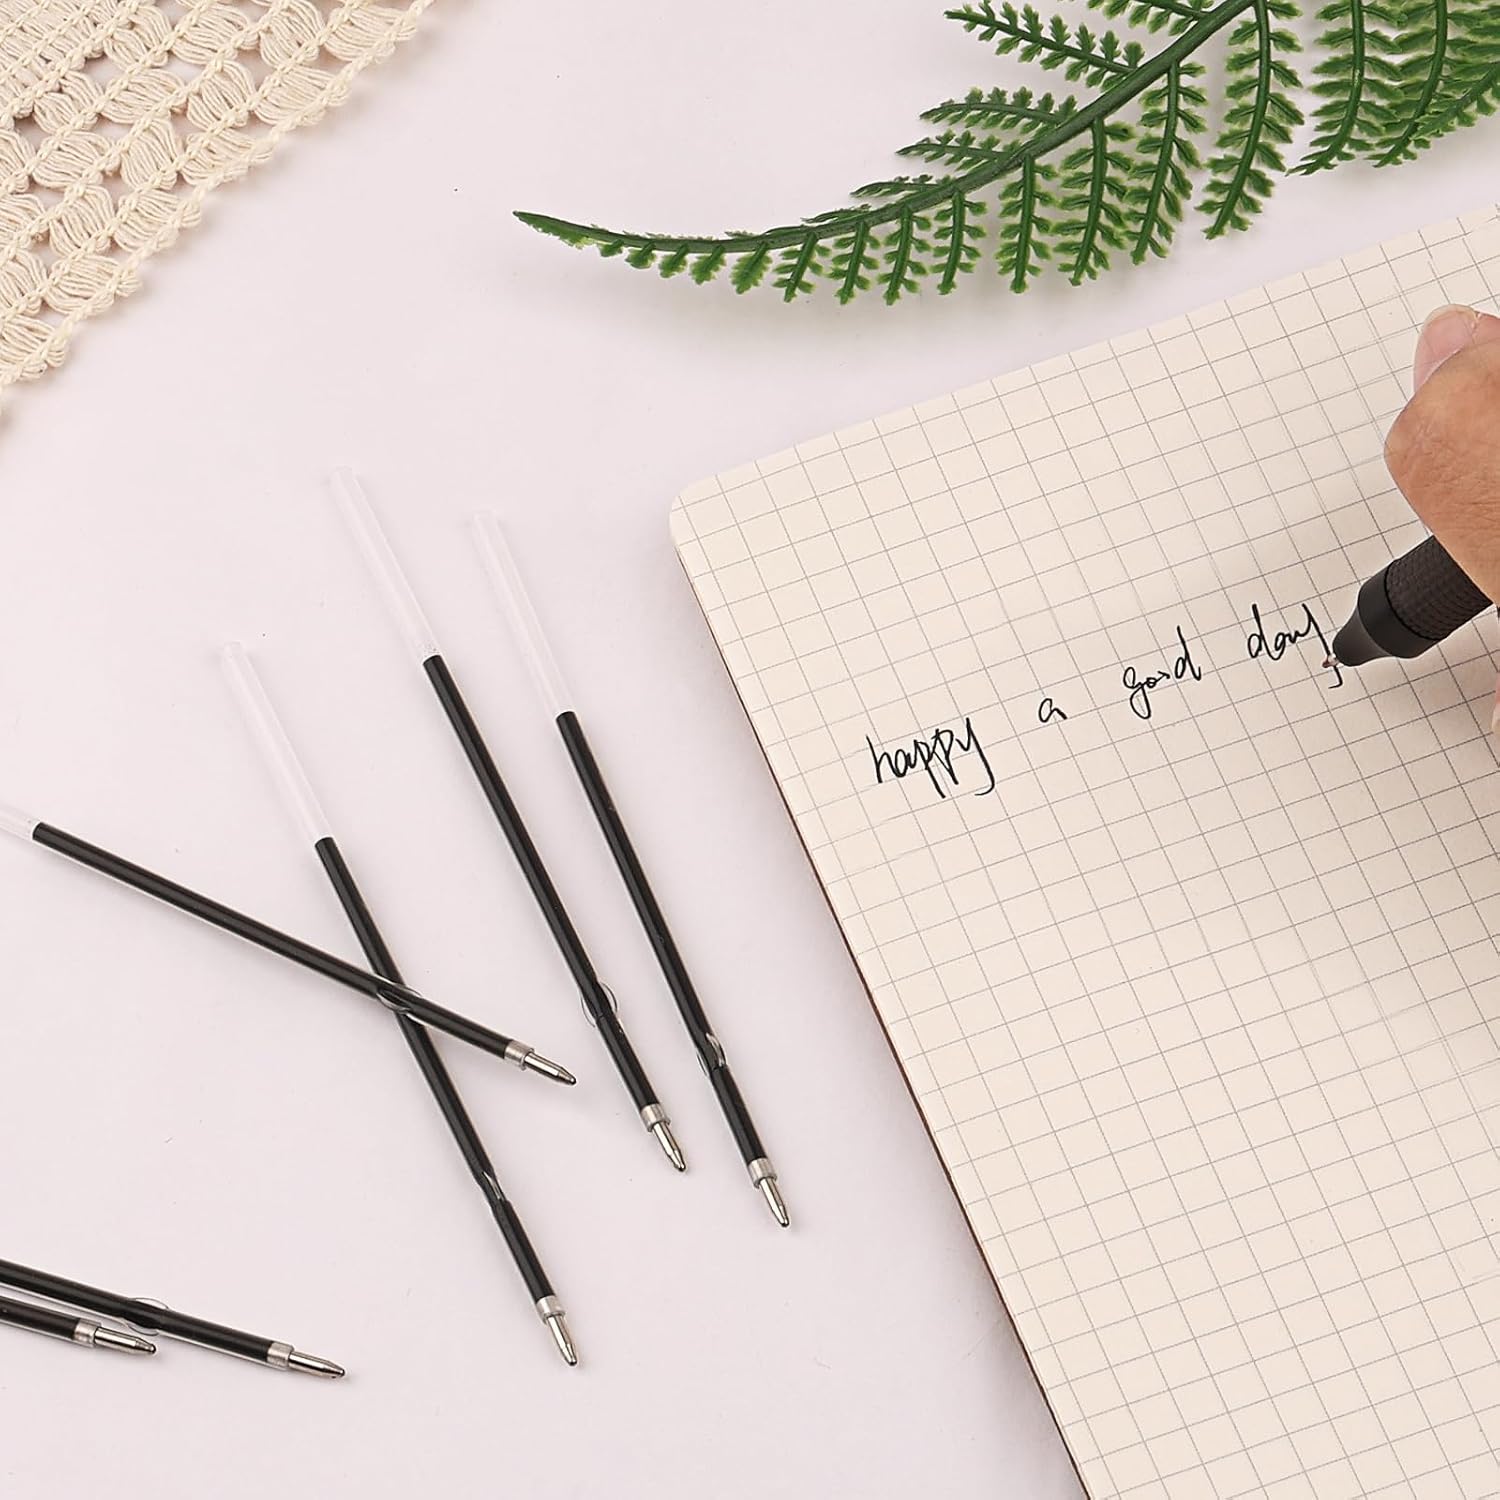 happy a good day